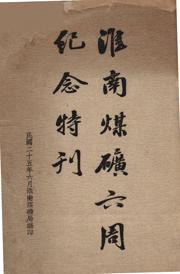 淮南煤礦六周
紀念特刊
民國二十五年六月淮南煤礦局編印